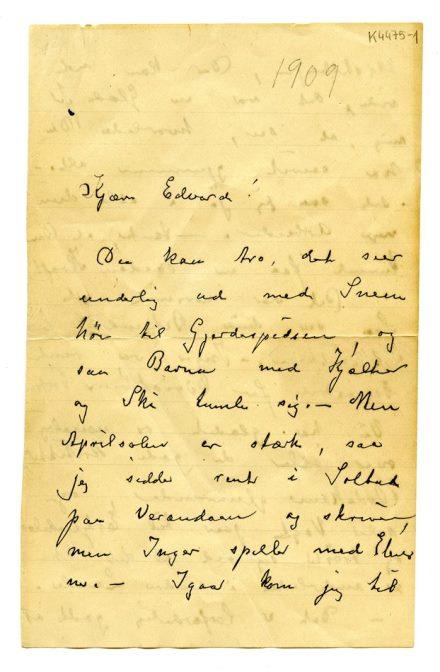 K4475-1
1909
Kjære Edvard!
Du kan tro, det seer
underlig ud med Sneen
hør til Gjerdespidsen, og
saa Barna med Kjælker
og Ski tumle sig. – Men
Aprilsolen er stærk, saa
jeg sidder rent i Soltak
paa Verandaen og skriver,
men Inger spiller med Elever
ne. – Igaar kom jeg til